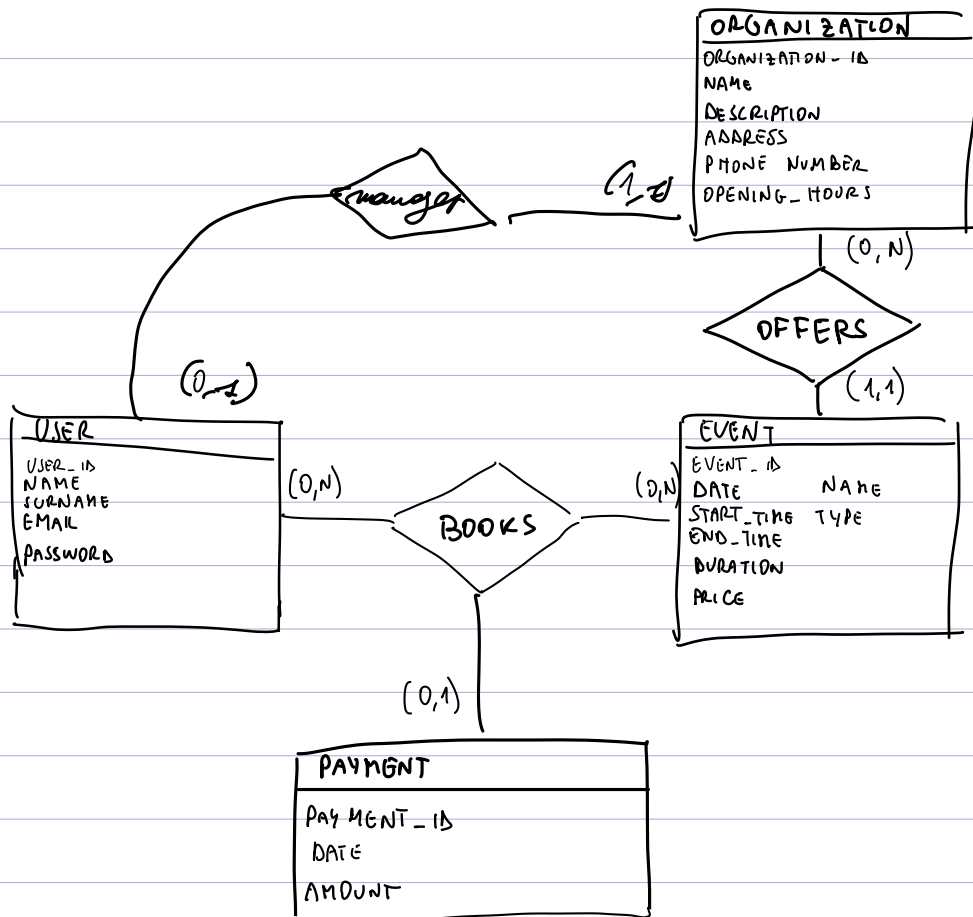 ORGANIZATION
ORGANIZATION_ID
NAME
DESCRIPTION
ADDRESS
PHONE NUMBER
OPENING_HOURS
manages
(1_1)
(0,N)
OFFERS
(1,1)
(0_1)
USER
USER_ID
NAME
SURNAME
EMAIL
PASSWORD
(0,N)
BOOKS
(0,N)
EVENT
EVENT_ID
DATE NAME
START_TIME TYPE
END_TIME
DURATION
PRICE
(0,1)
PAYMENT
PAYMENT_ID
DATE
AMOUNT